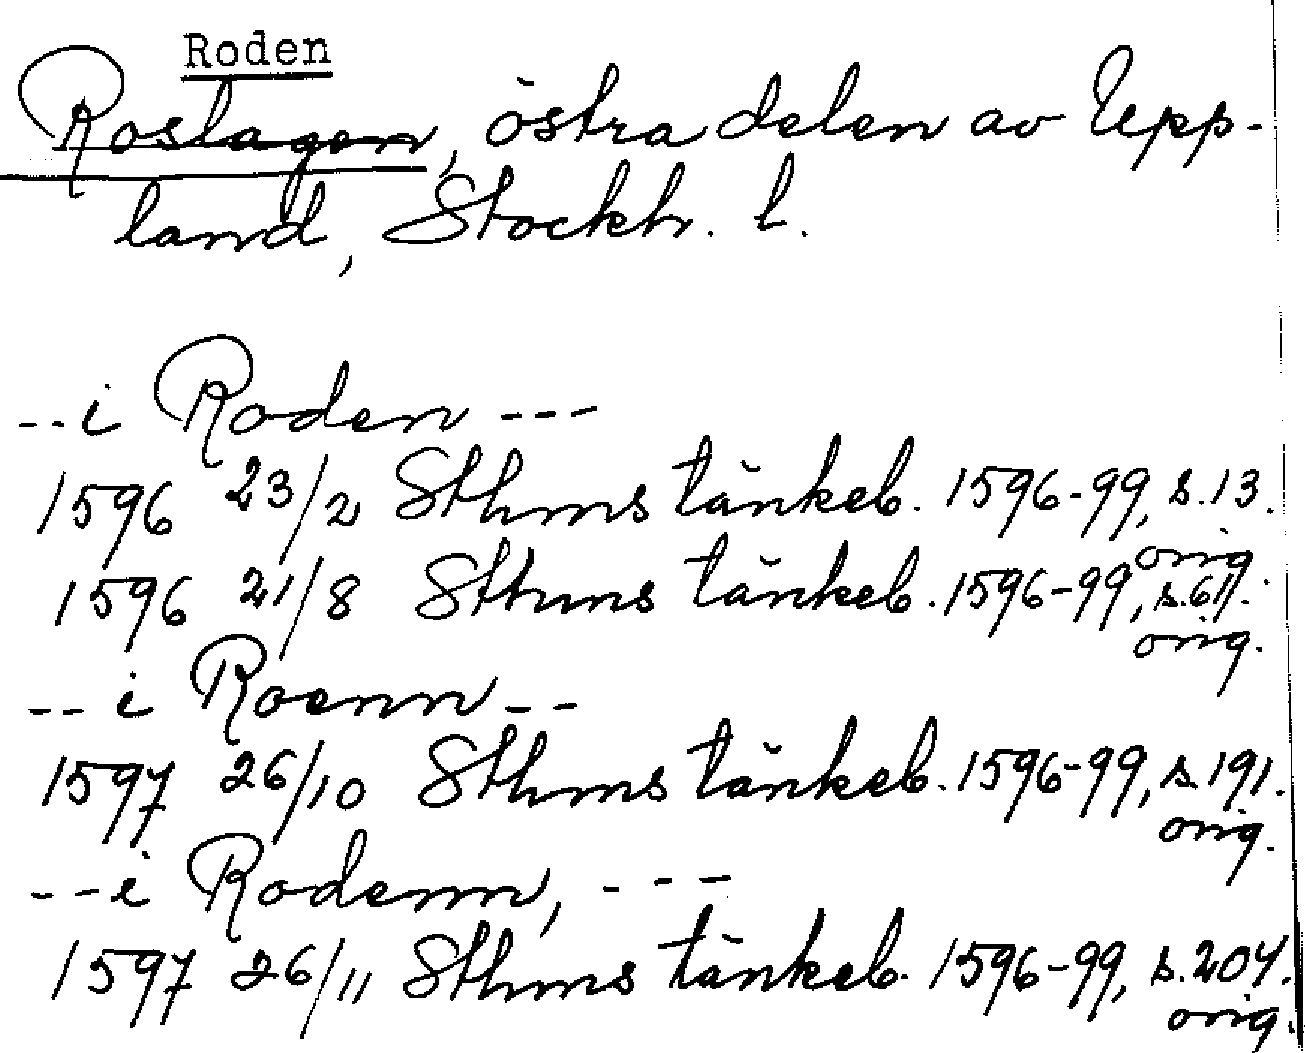 Roden
Roslagen, östra delen av Upp-
land, Stockh. l.
--i Roden ---
1596 23/2 Sthms tänkeb. 1596-99, s.13.
orig.
1596 21/8 Sthms tänkeb. 1596-99, s.61.
orig.
-- i Roenn --
1597 26/10 Sthms tänkeb. 1596-99, s.191.
orig.
--i Rodenn, ---
1597 26/11 Sthms tänkeb. 1596-99, s.204.
orig.